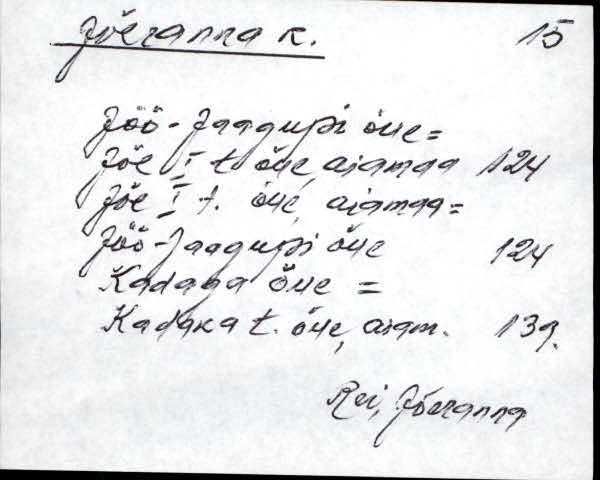 Jõeranna k. 15
Jõõ-Jaagupi õue =
Jõe I t. õue, aiamaa 124
Jõe I t. õue, aiamaa =
Jõõ-Jaagupi õue 124
Kadaga õue =
Kadaka t. õue, aiam. 139.
Rei, Jõeranna